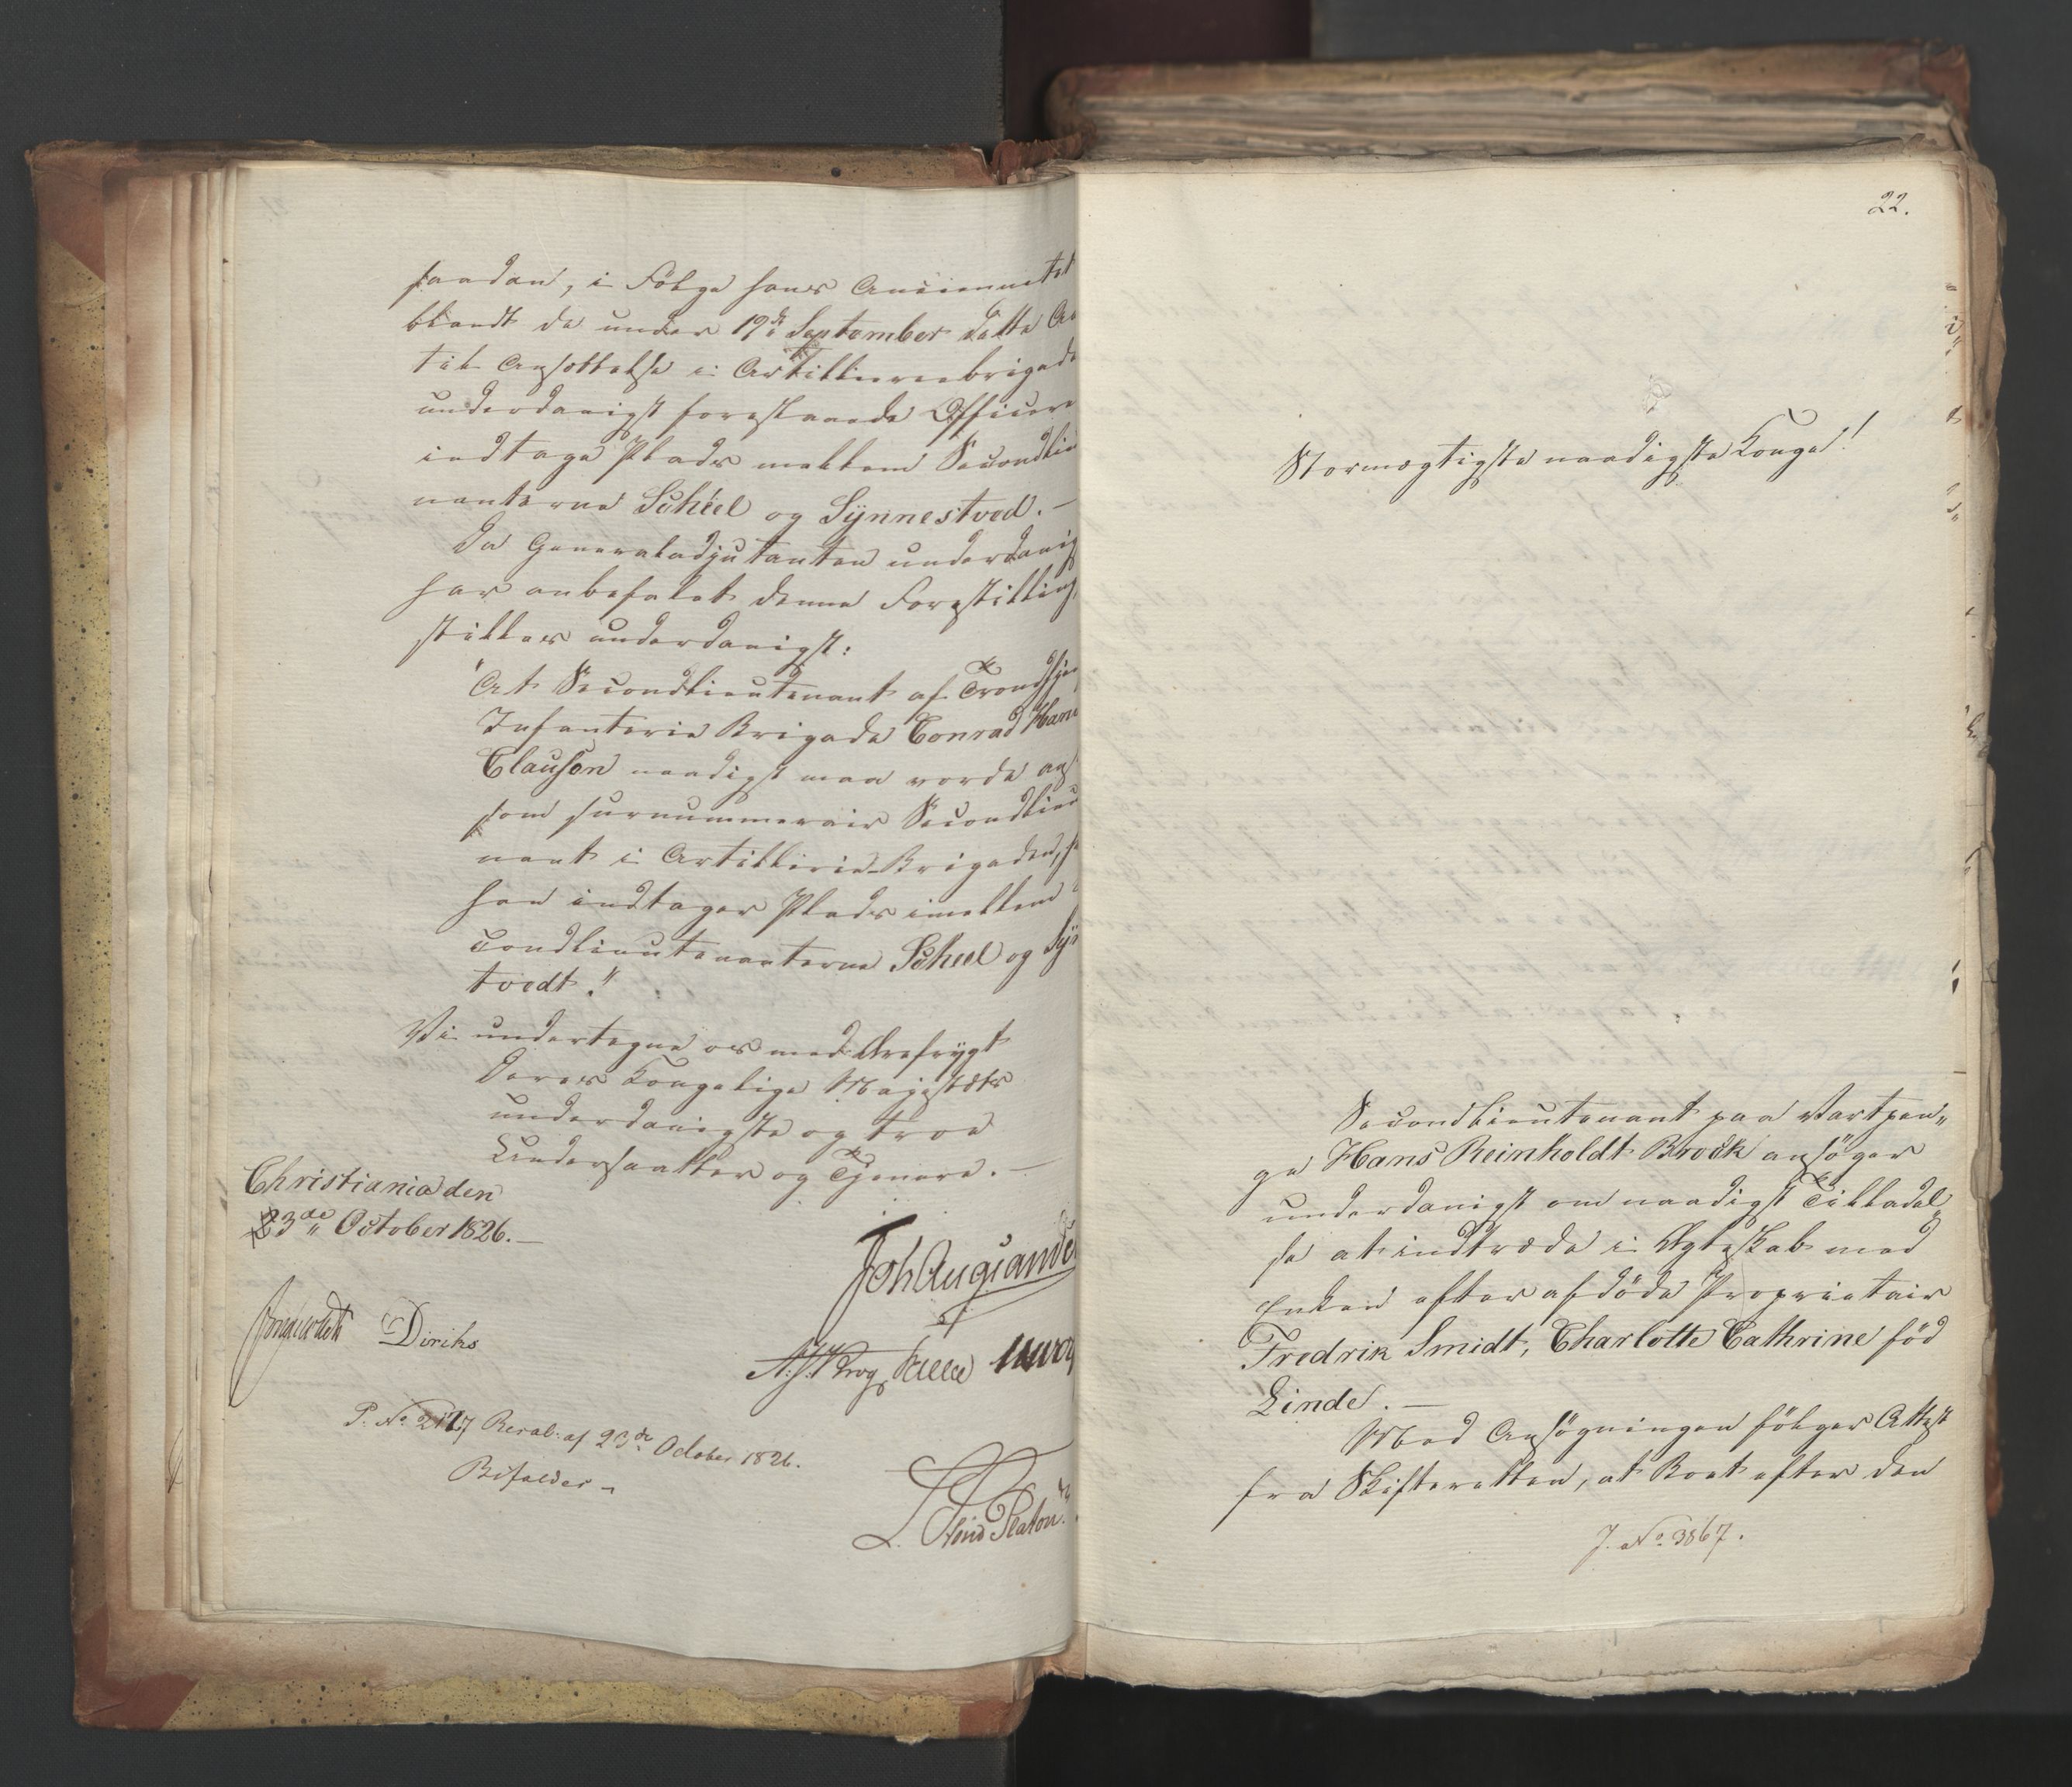 saadan, i Følge hans Anciennetet
blandt de under 19de September dette Aa
til Ansættelse i Artilleriebrigade
underdanigst foreslaaede Officere
indtage Plads mellem Secondlie
nanterne Scheel og Synnestved. —
Da Generaladjutanten underdanig
har anbefalet denne Forestilling,
stilles underdanigst:
"At Secondlieutenant af Trondhjem
Infanterie Brigade Conrad Hans
Clauson naadigst maa vorde ans
som surnummerair Secondlieu
nant i Artillerie-Brigaden, s
han indtager Plads imellem
condlieutenanterne Scheel og Syn
tvedt."
Vi undertegne os med Ærefrygt
Deres Kongelige Majestæts
underdanigste og troe
Undersaatter og Tjenere. —
Christiania den
23de October 1826. —
Joh Aug Sande
Diriks
P. No. 2117 Resol: af 23de October 1826.
Bifaldes –
22.
Stormægtigste naadigste Konge!
Secondlieutenant paa Vartpen„
ge Hans Reinholdt Brock ansøger
underdanigst om naadigst Tilladel„
se at indtræde i Ægteskab med
Enken efter afdøde Proprietair
Fredrik Smidt, Charlotte Cathrine fød
Linde. —
Med Ansøgningen følger Attest
fra Skifteretten, at Boet efter den
J. No. 3867.